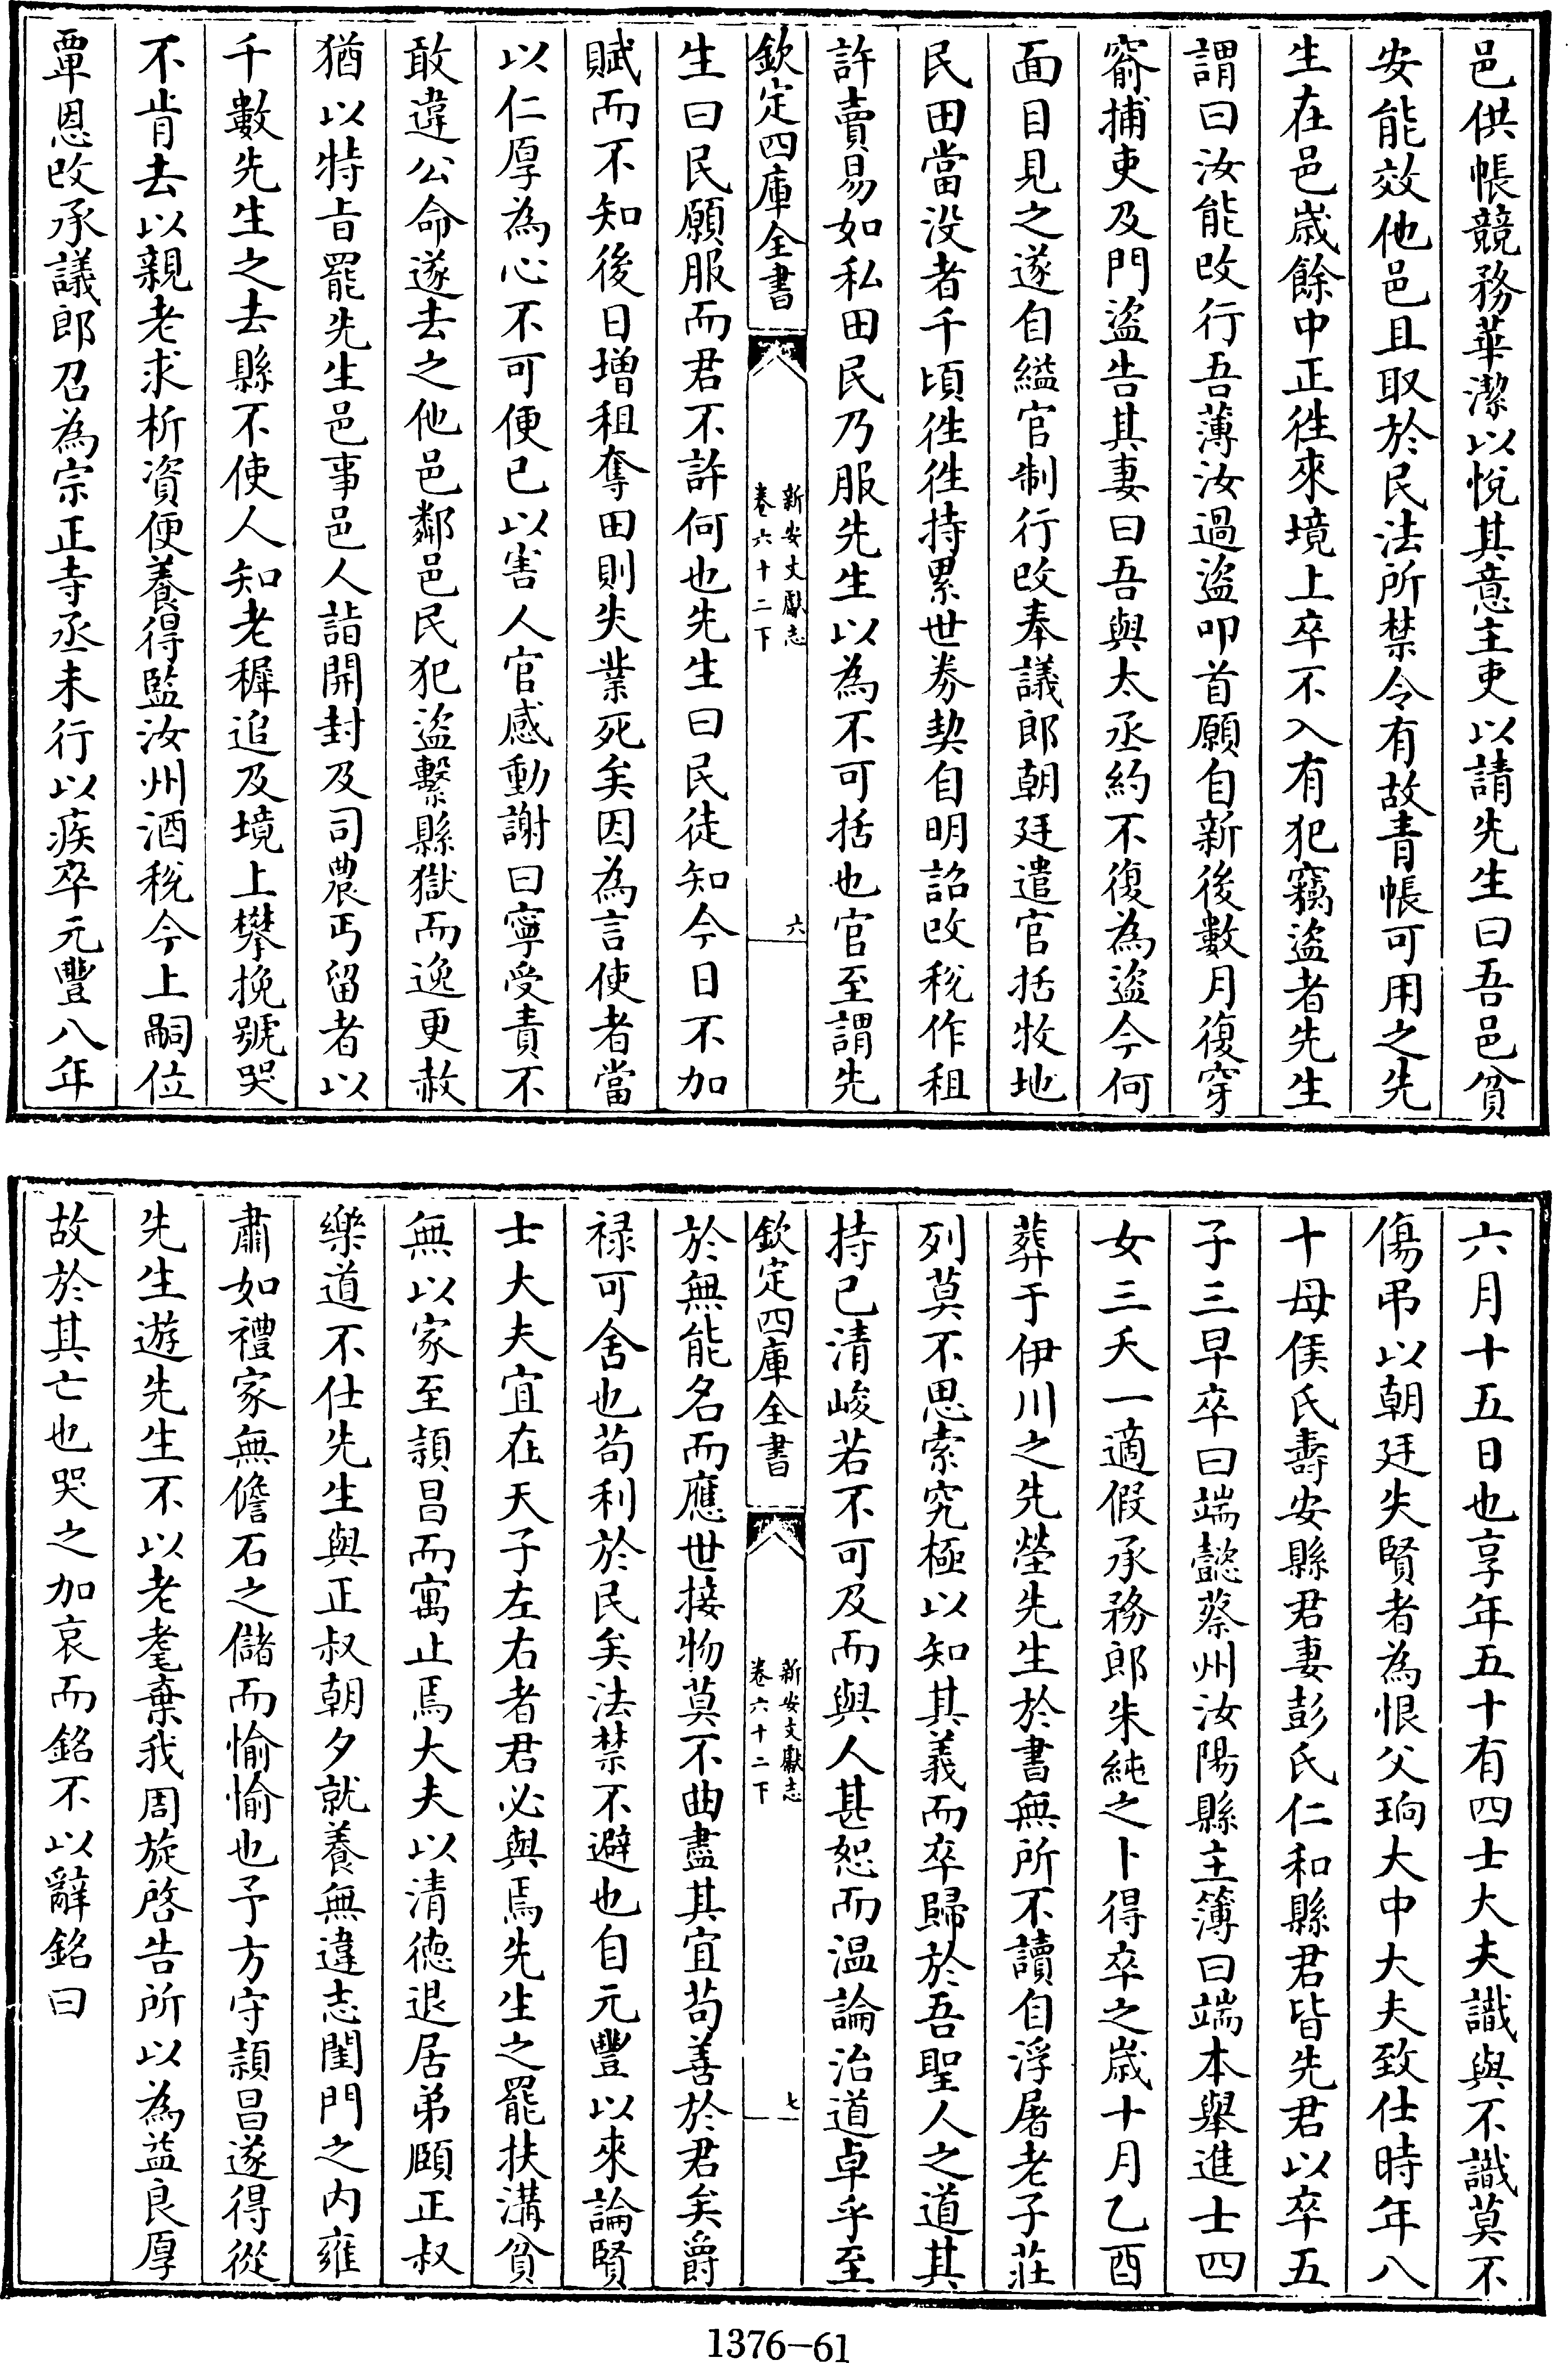 邑供帳競務華潔以悅其意主吏以請先生曰吾邑貧
安能效他邑且取於民法所禁令有故青帳可用之先
生在邑歲餘中正徃來境上卒不入有犯竊盜者先生
謂曰汝能改行吾薄汝過盜叩首願自新後數月復穿
窬捕吏及門盜告其妻曰吾與太丞約不復為盜今何
面目見之遂自縊官制行改奉議郎朝廷遣官括牧地
民田當没者千頃徃徃持累世券契自明詔改稅作租
許賣易如私田民乃服先生以為不可括也官至謂先
欽定四庫全書
新安文獻志
卷六十二下
六
生曰民願服而君不許何也先生曰民徒知今日不加
賦而不知後日增租奪田則失業死矣因為言使者當
以仁厚為心不可便已以害人官感動謝曰寧受責不
敢違公命遂去之他邑鄰邑民犯盜繫縣獄而逸更赦
猶以特旨罷先生邑事邑人詣開封及司農丐留者以
千數先生之去縣不使人知老穉追及境上攀挽號哭
不肯去以親老求析資便養得監汝州酒稅今上嗣位
覃恩改承議郎召為宗正寺丞未行以疾卒元豐八年
六月十五日也享年五十有四士大夫識與不識莫不
傷弔以朝廷失賢者為恨父珦大中大夫致仕時年八
十母侯氏壽安縣君妻彭氏仁和縣君皆先君以卒五
子三早卒曰端懿蔡州汝陽縣主簿曰端本舉進士四
女三夭一適假承務郎朱純之卜得卒之歲十月乙酉
葬于伊川之先塋先生於書無所不讀自浮屠老子莊
列莫不思索究極以知其義而卒歸於吾聖人之道其
持已清峻若不可及而與人甚恕而温論治道卓乎至
欽定四庫全書
新安文獻志
卷六十二下
七
於無能名而應世接物莫不曲盡其宜苟善於君矣爵
祿可舍也苟利於民矣法禁不避也自元豐以來論賢
士大夫宜在天子左右者君必與焉先生之罷扶溝貧
無以家至潁昌而寓止焉大夫以清德退居弟頤正叔
樂道不仕先生與正叔朝夕就養無違志閨門之内雍
肅如禮家無儋石之儲而愉愉也予方守潁昌遂得從
先生遊先生不以老耄棄我周旋啓告所以為益良厚
故於其亡也哭之加哀而銘不以辭銘曰
1376-61